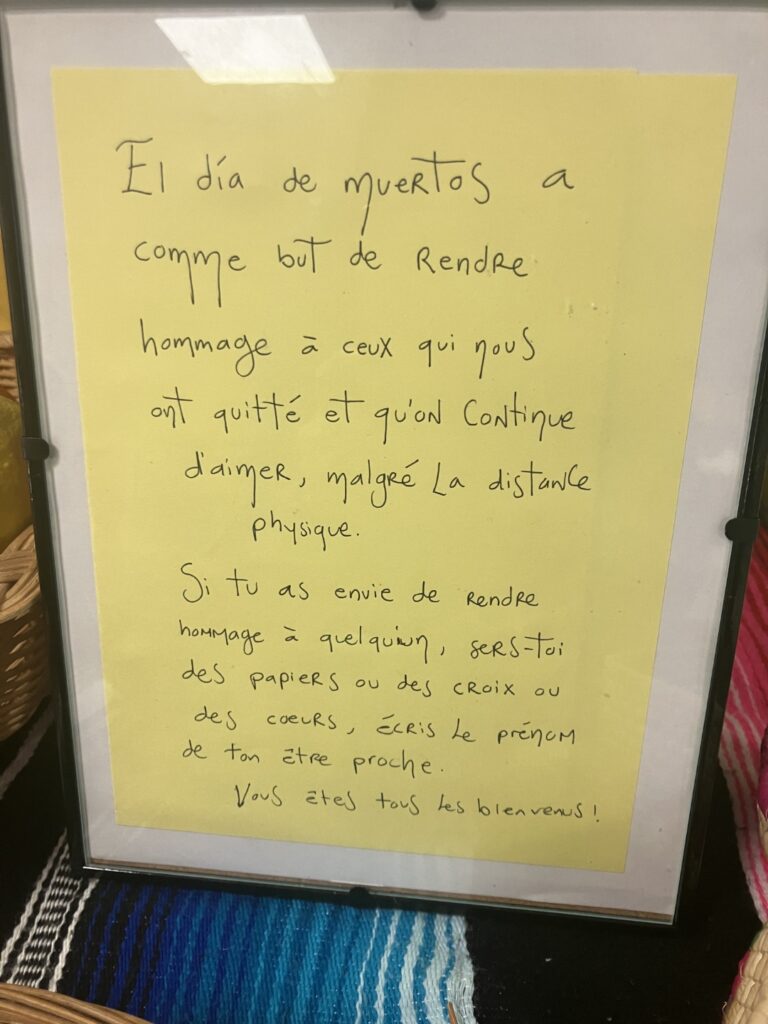 El día de muertos a
comme but de rendre
hommage à ceux qui nous
ont quitté et qu'on continue
d'aimer, malgré la distance
physique.
Si tu as envie de rendre
hommage à quelqu'un, sers-toi
des papiers ou des croix ou
des coeurs, écris le prénom
de ton être proche.
Vous êtes tous les bienvenus !